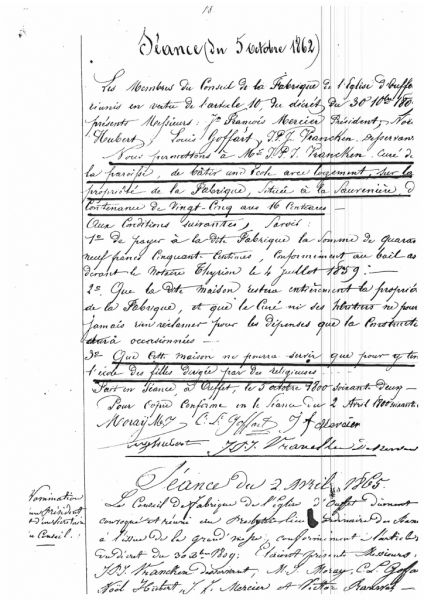 18
Séance (du 5 octobre 1862)
Les Membres du Conseil de la Fabrique de l'Eglise d'Ouffet
réunis en vertu de l'article 10, du décret du 30 Xbre 1809,
présents Messieurs: Jn François Mercier Président, Noël
Hubert, Louis Goffart, J.P.J. Francken Desservant
Nous permettons à Mr J.P.J. Francken curé de
la paroisse, de bâtir une école avec logement, sur la
propriété de la Fabrique, située à la Sauvenière, d
Contenance de Vingt-Cinq ares 16 Centiares —
Aux Conditions suivantes, savoir:
1° de payer à la dite Fabrique la somme de quaran
neuf francs Cinquante Centimes, conformément au bail
devant le Notaire Thyrion le 4 juillot 1859. —
2° Que la dite maison restera entièrement la propriété
de la Fabrique, et que le Curé ni ses héritiers ne pour
jamais rien réclamer pour les dépenses que la Construct
aura occasionnées —
3° Que cette maison ne pourra servir que pour y ten
l'école des filles dirigée par des religieuses
Fait en Séance à Ouffet, le 5 octobre 1800 soixante deux —
Pour Copie Conforme en la Séance du 2 Avril 1800 soixante
Moray M.J. C. L. Goffart J f Mercier
Hubert J.P.J. Francken Desservant
Séance du 2 Avril 1865.
Nomination
du Président
et du Secrétaire
du Conseil.
Le Conseil de Fabrique de l'Eglise d'Ouffet dûment
convoqué et réuni au Presbytère lieu ordinaire des séan
à l'issue de la grand'messe, conformément à l'article
du décret du 30 Xbre 1809; Etaient présents Messieurs:
J.P.J. Francken desservant, M. J. Moray, C. L. Goffa
Noël Hubert, J. F. Mercier et Victor